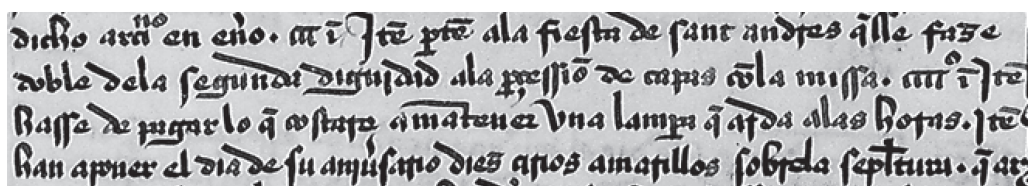 dicho arcino en eno. cm i Itē ptē ala fiesta de sant andres q̄lle faze
doble dela segunda dignidād ala p̱cessiō de capas cōla missa. cmº i Itē
hasse de pagar lo q̄ costare amatener Vna lampa q̄ arda alas horas. Itē
han aponer el dia de su anīusario dies cirios amarillos sobrela sepltura. q̄